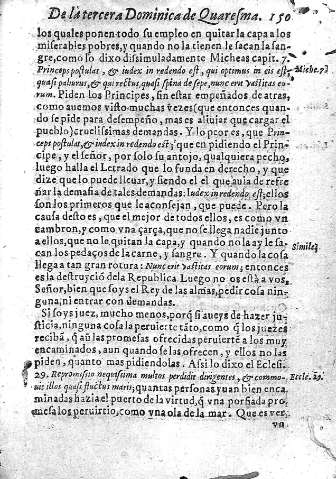 De la tercera Dominica de Quaresma. 150
los quales ponen todo su empleo en quitar la capa a los
miserables pobres, y quando no la tienen le sacan la san-
gre, como lo dixo dissimuladamente Micheas capit. 7.
Princeps postulat, & iudex in redendo est, qui optimus in eis est
Miche. 7.
quasi paliurus, & qui rectus quasi spina de sepe, nunc erit vastitas eo-
rum. Piden los Principes, sin estar empeñados de atras,
como auemos visto muchas vezes (que entonces quan-
do se pide para desempeño, mas es aliuiar que cargar el
pueblo) cruelissimas demandas. Y lo peor es, que Prin-
ceps postulat, & iudex in redendo est, que en pidiendo el Prin-
cipe, y el señor, por solo su antojo, qualquiera pecho,
luego halla el Letrado que lo funda en derecho, y que
dize que lo puede lleuar, y siendo el q̃ que auia de refre
nar la demasia de tales demandas. Iudex in redendo est, ellos
son los primeros que le aconsejan, que puede. Pero la
causa desto es, que el mejor de todos ellos, es como vn
cambron, y como vna çarça, que no se llega nadie junto
a ellos, que no le quitan la capa, y quando no la ay le sa-
Simile.
can los pedaços de la carne, y sangre. Y quando la cosa
llega a tan gran rotura: Nunc erit vastitas eorum; entonces
es la destruyciõ dela Republica Luego no os està a vos,
Señor, bien que soys el Rey de las almas, pedir cosa nin-
guna, ni entrar con demandas.
Si soys juez, mucho menos, porq̃ si aueys de hazer ju-
sticia, ninguna cosa la peruierte tãto, como q̃ los juezes
recibã, q̃ aũ las promesas ofrecidas peruierte a los muy
encaminados, aun quando se las ofrecen, y ellos no las
piden, quanto mas pidiendolas. Assi lo dixo el Eclesi.
29. Repromissio nequissima multos perdidit dirigentes, & commo-
Eccle. 29.
uit illos quasi fluctus maris; quantas personas yuan bien enca-
minadas hazia el puerto de la virtud, q̃ vna porfiada pro
mesa los peruirtio, como vna ola de la mar. Que es ver,
vn